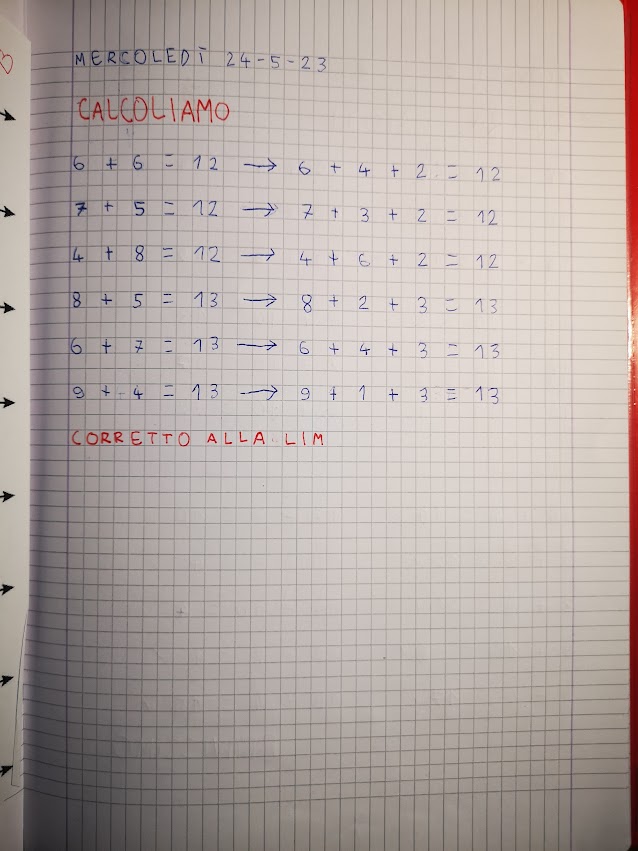 MERCOLEDÌ 24-5-23
CALCOLIAMO
6 + 6 = 12 → 6 + 4 + 2 = 12
7 + 5 = 12 → 7 + 3 + 2 = 12
4 + 8 = 12 → 4 + 6 + 2 = 12
8 + 5 = 13 → 8 + 2 + 3 = 13
6 + 7 = 13 → 6 + 4 + 3 = 13
9 + 4 = 13 → 9 + 1 + 3 = 13
CORRETTO ALLA LIM